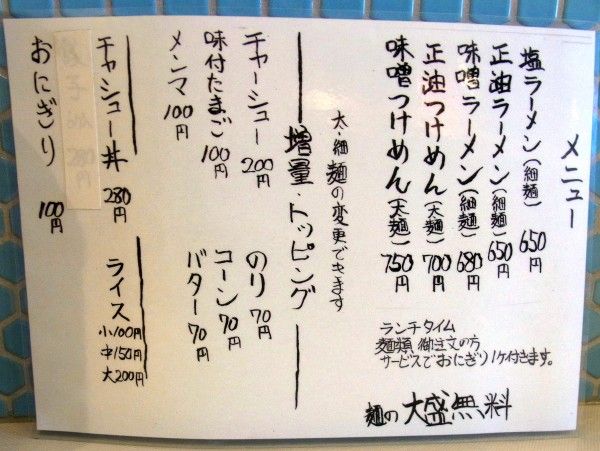 メニュー
塩ラーメン(細麺) 650円
正油ラーメン(細麺) 650円
味噌ラーメン(細麺) 680円
正油つけめん(太麺) 700円
味噌つけめん(太麺) 750円
ランチタイム
麺類御注文の方
サービスでおにぎり1ヶ付きます。
麺の大盛無料
太・細麺の変更できます
増量・トッピング
チャーシュー 200円
味付たまご 100円
メンマ 100円
のり 70円
コーン 70円
バター 70円
チャーシュー丼 280円
ライス
小100円
中150円
大200円
おにぎり 100円